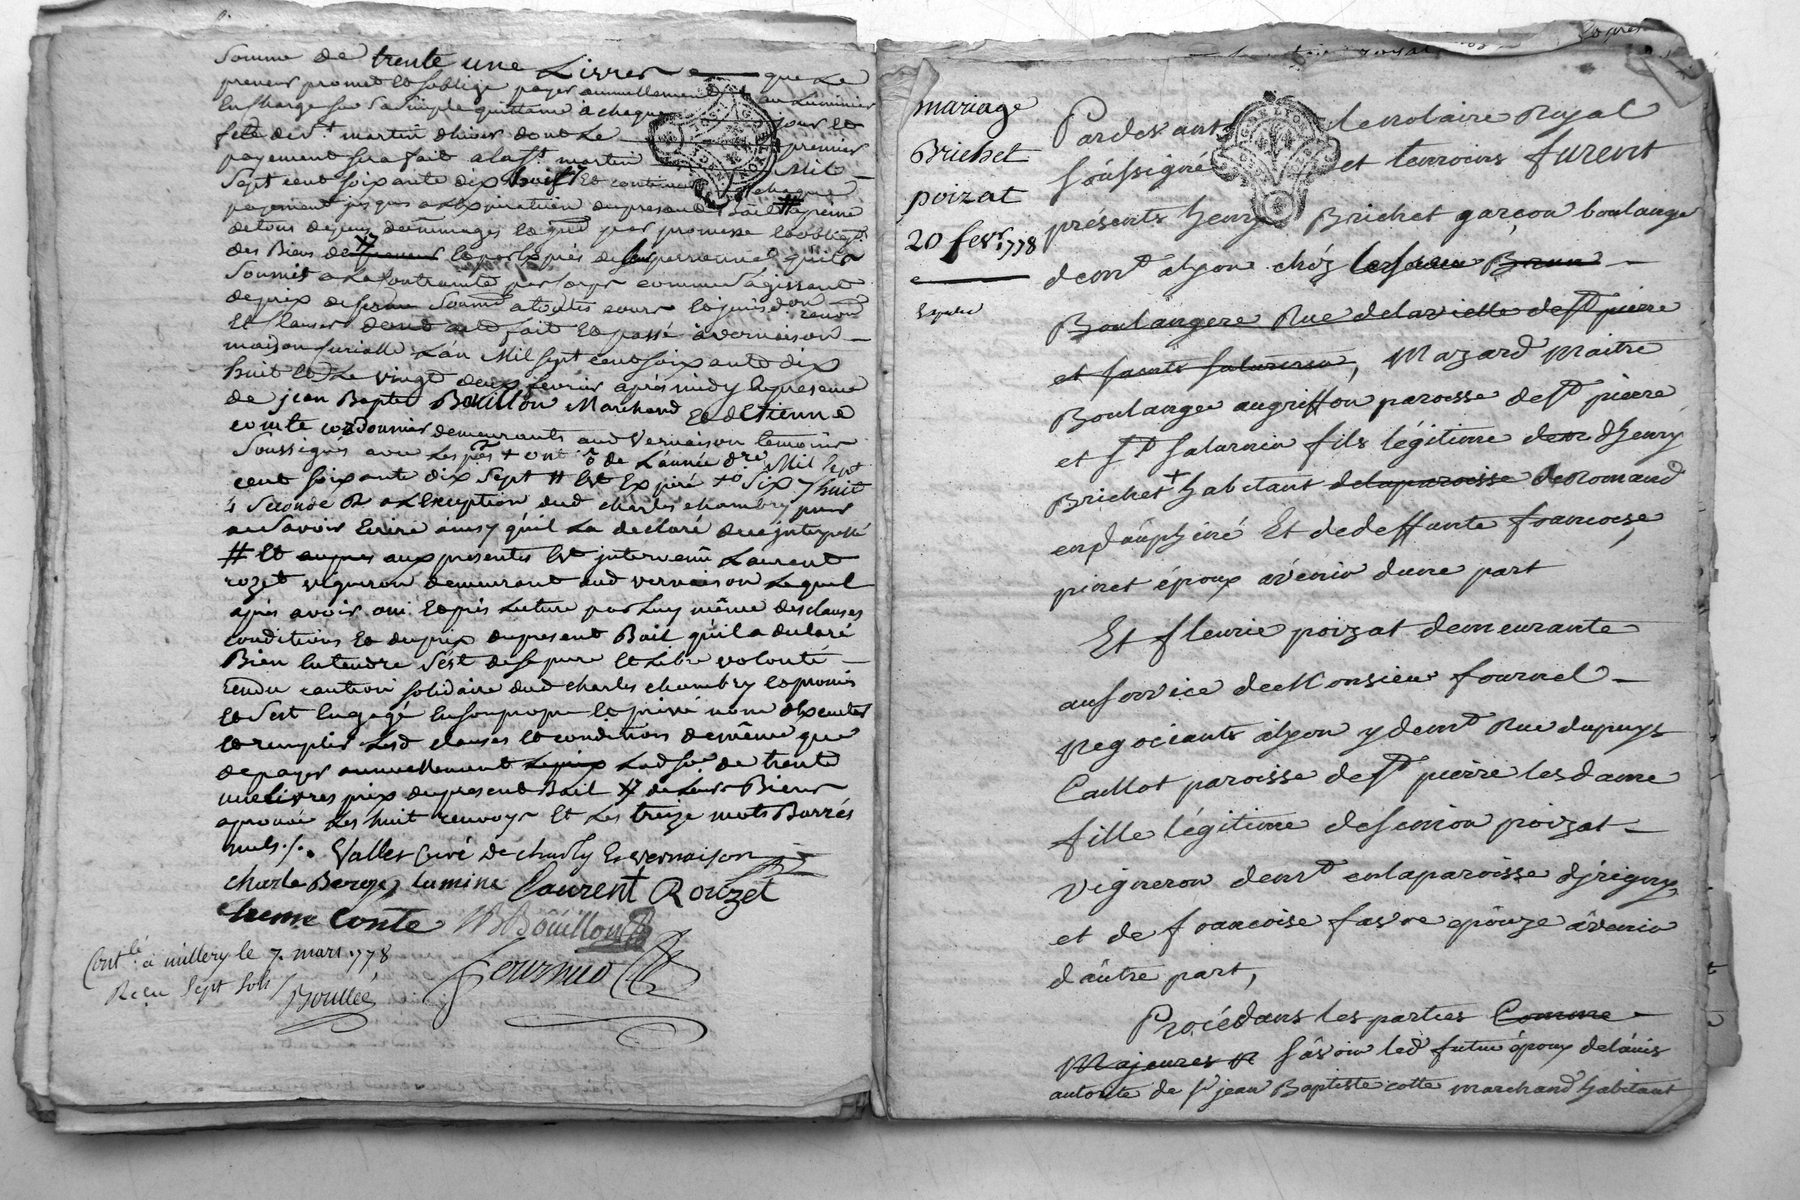 Somme de trente une Livres que Le
preneur promet et soblige payer annuellement au Luminier
En charge sur sa simple quittance a chaque jour et
fette de St. martin dhiver dont Le premier
payement sera fait a la St. martin Mil
Sept cent soixante dix huit Et continuer chaque
payement jusques a Lexpiration du present Bail # a peine
de tous depens dommages
des Biens de preneur personnel quil
Soumet a La Contrainte par Corps comme sagissant
de prix de ferme Soumon a toutes cours
Et Clauses dont acte fait Et passé a vernaison
maison Curialle Lan Mil sept cent soixante dix
huit Et Le vingt deux fevrier après midy En presence
de jean Bapte Bouillon Marchand Et detienne
comte cordonnier demeurants aud Vernaison temoins
Soussignés avec Les ptes + ont de L'année dre Mil sept
cent soixante dix Sept # Et Expiré Six huit
a Lexception dud charles chambry pour
ne Savoir Ecrire ainsy quil La declaré de ce interpellé
# Et aupres aux presentes Est intervenu Laurent
rozet vigneron demeurant aud vernaison Lequel
après avoir oui Et pris Lecture par Luy même des clauses
conditions Et du prix du present Bail quil a declaré
Bien Entendre s'est de sa pure Et Libre volonté
rendu caution solidaire dud charles chambry Et promis
Et s'est Engagé En son propre Et privé nom dexecuter
Et remplir Lesd clauses Et conditions de même que
de payer annuellement Le prix Lad so.e de trente
une Livres prix du present Bail de Leurs Biens
aprouvé Les huit renvoys Et Les treize mots Barrés
nuls ./. Valles Curé de charly Et vernaison
charle Berge lumine Laurent Rouzet
etienne Conte JB Boüillon
Contlé. a millery le 7. mars .778
Reçu Sept sols
Boullée
mariage
Brichet
poizat
20 fevr. 1778
Expedié
Pardevant le notaire Royal
soussigné et temoins furent
présents henry Brichet garçon boulanger
demt. alyon chéz le sieur Brun
Boulangere Rue de la vielle de St. pierre
et saints saturnin, Mazard maitre
Boulanger au griffon paroisse de St. pierre
et St. saturnin fils légitime de dhenry
Brichet + habitant de la paroisse de Romand
en dauphiné Et de deffunte francoise
pinet époux avenir d'une part
Et fleurie poizat demeurante
au service de Monsieur fournel
Negociants alyon y demt. Rue du puys
Caillot paroisse de St. pierre les dame
fille légitime de simon poizat
vigneron demt. en la paroisse djrigny
et de francoise favre epouze avenir
d'autre part,
Procédans les parties Comme
Majeures # sávoir led futur époux de lavis
autorité de sr. jean Baptiste cotte marchand habitant